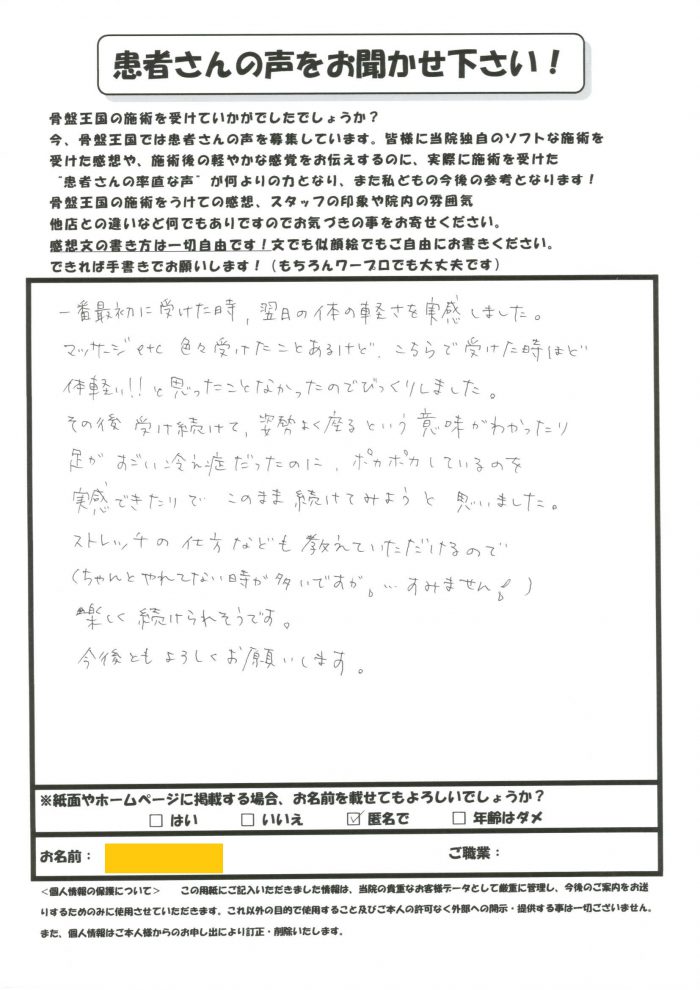 患者さんの声をお聞かせ下さい！
骨盤王国の施術を受けていかがでしたでしょうか？
今、骨盤王国では患者さんの声を募集しています。皆様に当院独自のソフトな施術を
受けた感想や、施術後の軽やかな感覚をお伝えするのに、実際に施術を受けた
"患者さんの率直な声"が何よりの力となり、また私どもの今後の参考となります！
骨盤王国の施術をうけての感想、スタッフの印象や院内の雰囲気
他店との違いなど何でもありですのでお気づきの事をお寄せください。
感想文の書き方は一切自由です！文でも似顔絵でもご自由にお書きください。
できれば手書きでお願いします！（もちろんワープロでも大丈夫です）
一番最初に受けた時、翌日の体の軽さを実感しました。
マッサージetc 色々受けたことあるけど、こちらで受けた時ほど
体軽い!!と思ったことなかったのでびっくりしました。
その後 受け続けて、姿勢よく座るという意味がわかったり
足がすごい冷え症だったのに、ポカポカしているのを
実感できたりで このまま続けてみようと思いました。
ストレッチの仕方なども教えていただけるので
(ちゃんとやれてない時が多いですが。…すみません!)
楽しく続けられそうです。
今後ともよろしくお願いします。
※紙面やホームページに掲載する場合、お名前を載せてもよろしいでしょうか？
□ はい □ いいえ ☑ 匿名で □ 年齢はダメ
お名前： ご職業：
＜個人情報の保護について＞ この用紙にご記入いただきました情報は、当院の貴重なお客様データとして厳重に管理し、今後のご案内をお送
りするためのみに使用させていただきます。これ以外の目的で使用すること及びご本人の許可なく外部への開示・提供する事は一切ございません。
また、個人情報はご本人様からのお申し出により訂正・削除いたします。